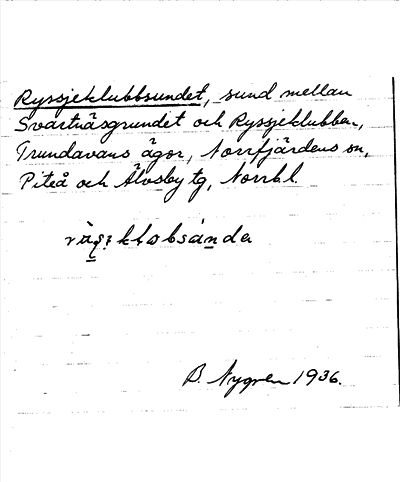 Ryssjeklubbsundet, sund mellan
Svartnäsgrundet och Ryssjeklubben,
Trundavans ägor, Norrfjärdens sn,
Piteå och Älvsby tg, Norrb.l.
B. Nygren 1936.